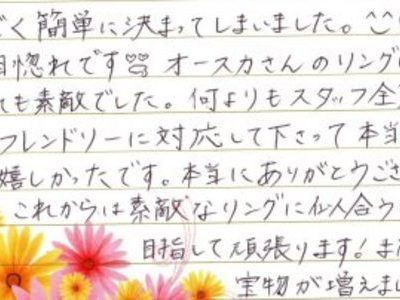 ごく簡単に決まってしまいました。^^
目惚れです オースカさんのリング
ても素敵でした。何よりもスタッフ全
フレンドリーに対応して下さって本当
嬉しかったです。本当にありがとうござ
これからは素敵なリングに似合う
目指して頑張ります！ま
宝物が増えまし